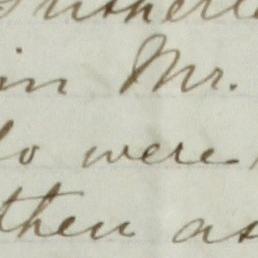 in Mr.
were
then as